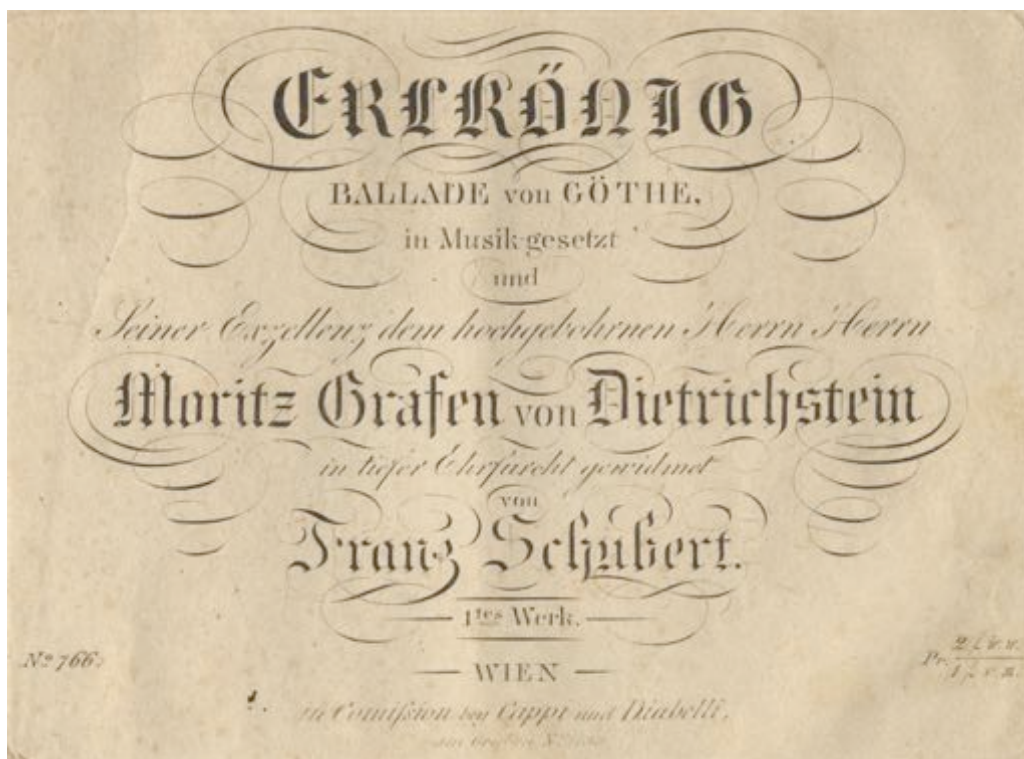 ERLKÖNIG
BALLADE von GÖTHE,
in Musik gesetzt
und
Seiner Exzellenz dem hochgebohrnen Herrn Herrn
Moritz Grafen von Dietrichstein
in tiefer Ehrfurcht gewidmet
von
Franz Schubert.
1tes Werk.
No 766.
Pr.
— WIEN —
in Comißion bey Cappi und Diabelli,